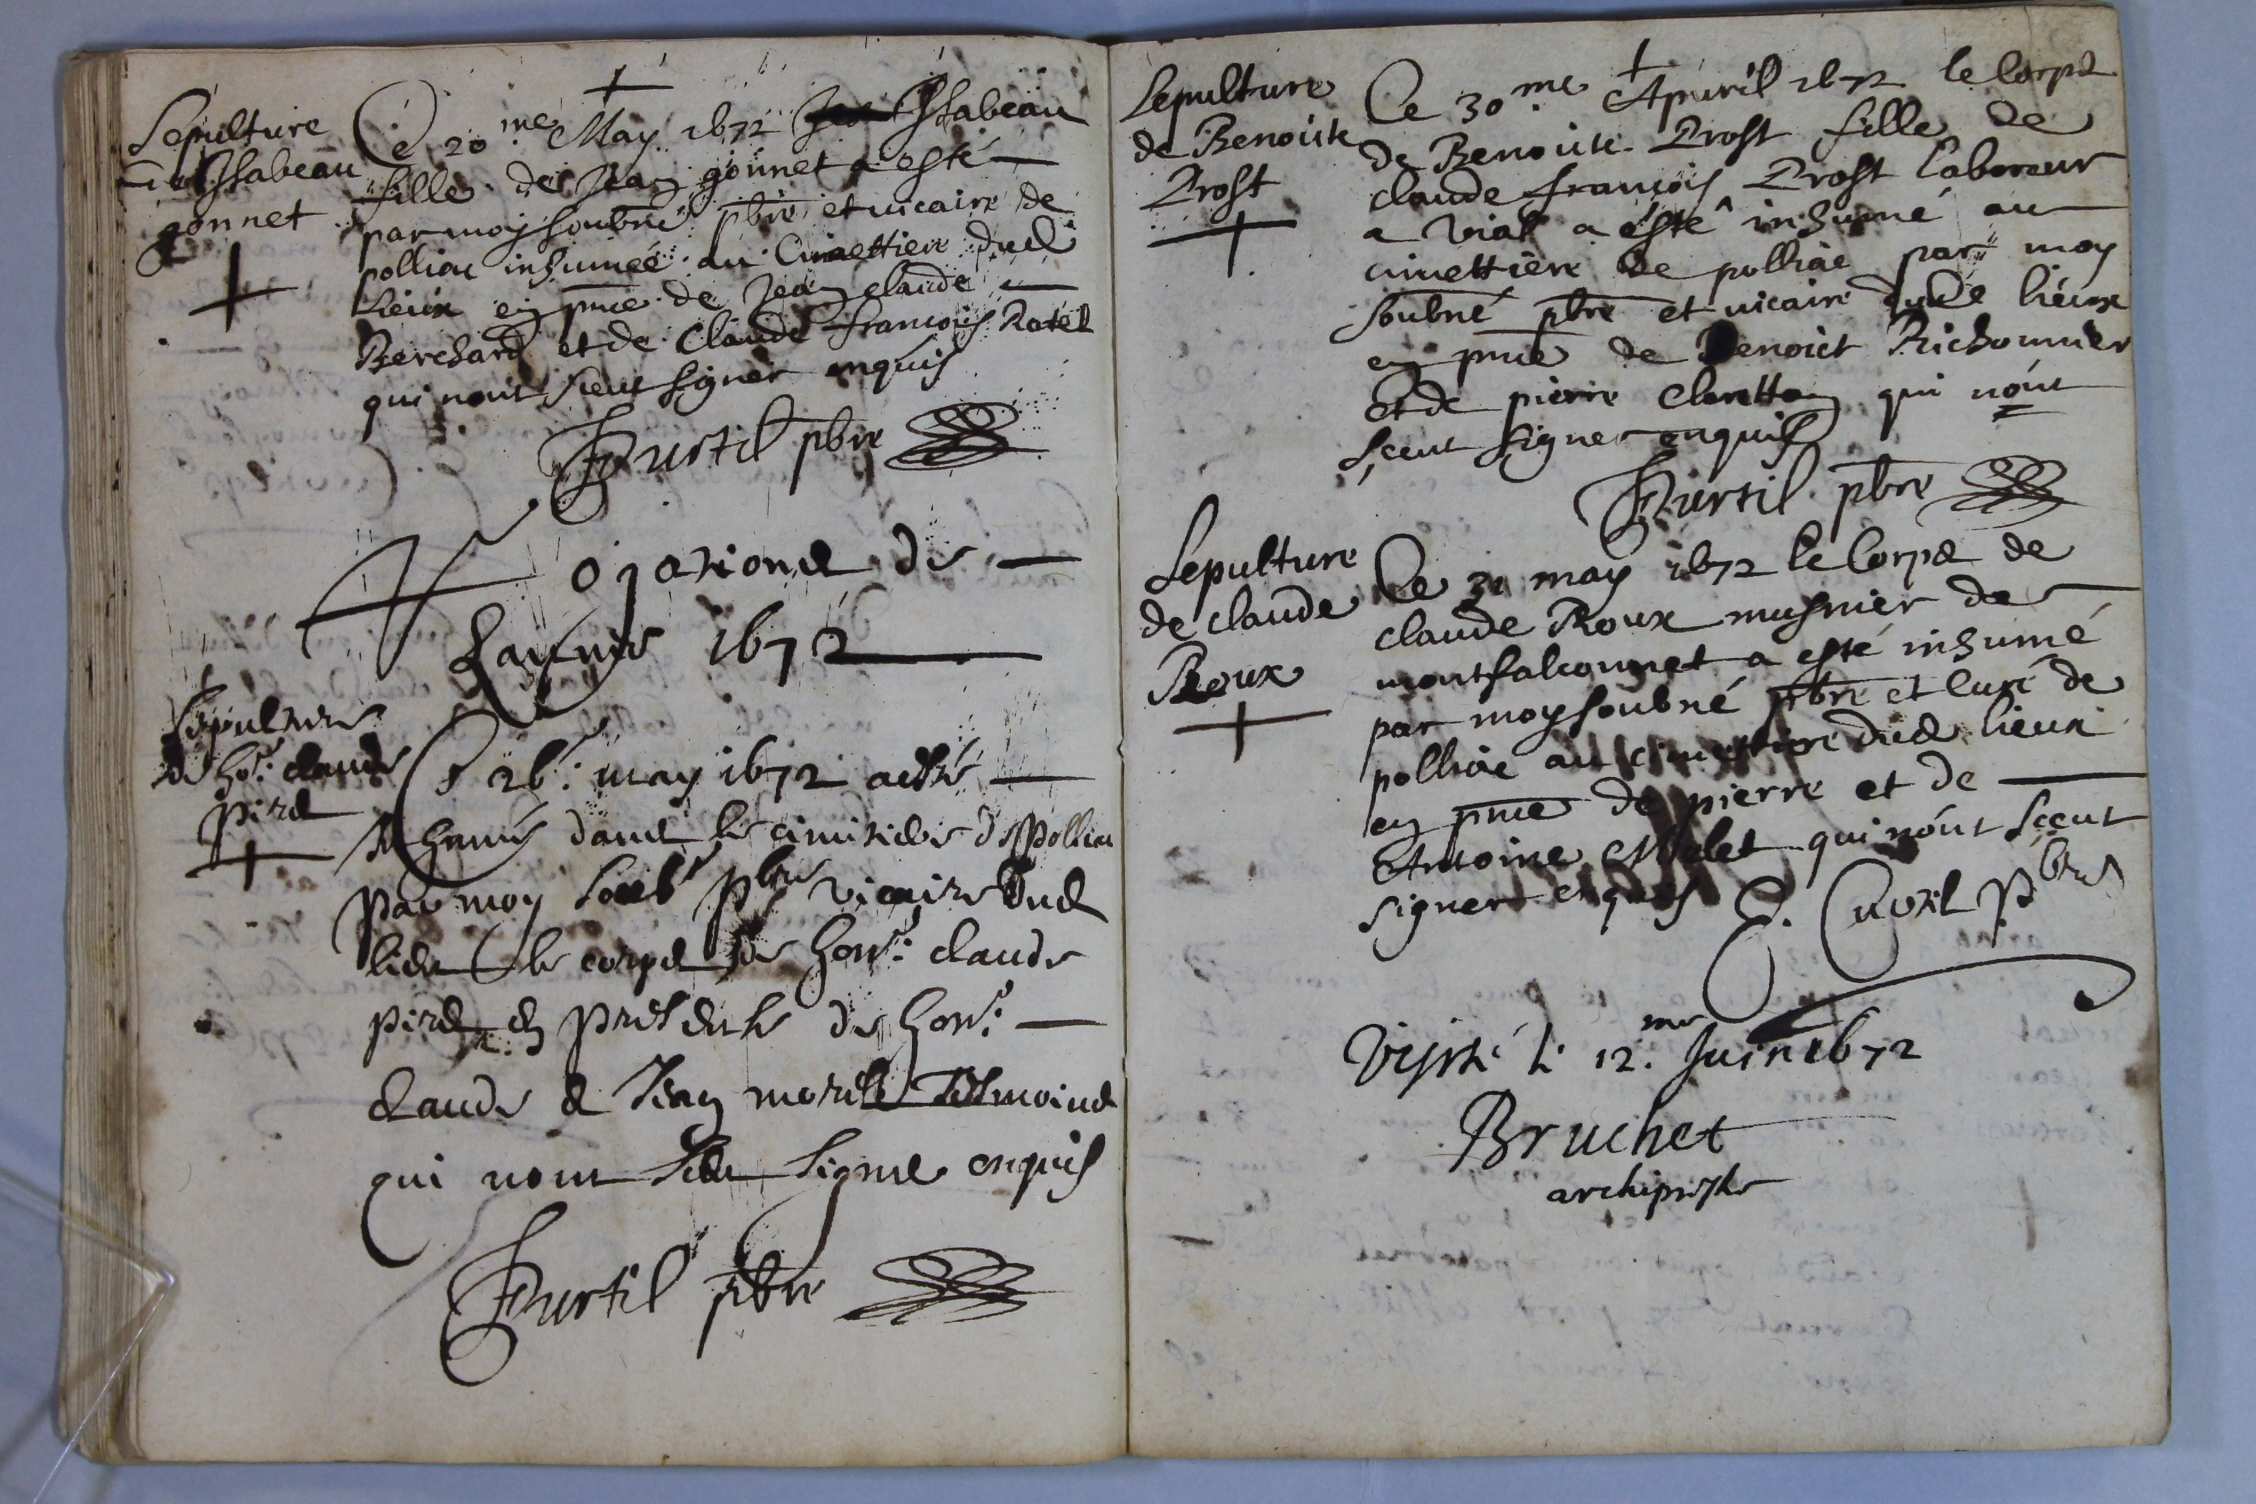 Sepulture
de Issabeau
gonnet
Ce 20.me May 1672 Issabeau
fille de Jean gonnet a esté
par moy soubné pbre et vicaire de
polliac inhumée au Cimettiere dud
Lieux en pnce de Jean claude
Berchard et de Claude francoys Ratel
qui nont sceut signer enquis
Hurtil pbre
de
Lannee 1672
Sepulture
de hon: claude
pirod
Ce 26: may 1672 a esté
dans le cimitiere de Polliac
par moy soub pbre vicaire dud
lieu le corps de hon: claude
en presence de hon:
claude & Jean morel tesmoins
qui nont sceu signe enquis
Hurtil pbre
Sepulture
de Benoiste
Prost
Ce 30me Apuril 1672 le Corps
de Benoiste Prost fille de
claude françois Prost laboreur
a Vial a esté inhumé au
cimettiere de polliac par moy
soubné pbre et vicaire dude lieux
en pnce de Benoict Richonnier
et de pierre Claretton qui nont
sceut signer enquis
Hurtil pbre
Sepulture
de claude
Roux
Ce 31 may 1672 le Corps de
claude Roux musnier de
montfalconnet a esté inhumé
par moy soubné pbre et Curé de
polliac au cimettiere dud lieux
en pnce de pierre et de
Antoine Velet qui nont sceut
signer enquis
pbre
Visité le 12.me Juin 1672
Bruchet
archiprestre